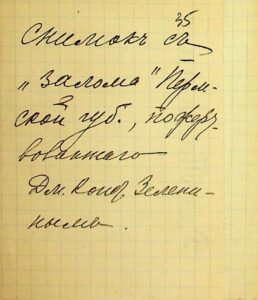 35
Снимокъ съ
„Залома“ Перм-
ской губ., пожерт-
вованнаго
Дм. Конст. Зелени-
нымъ.